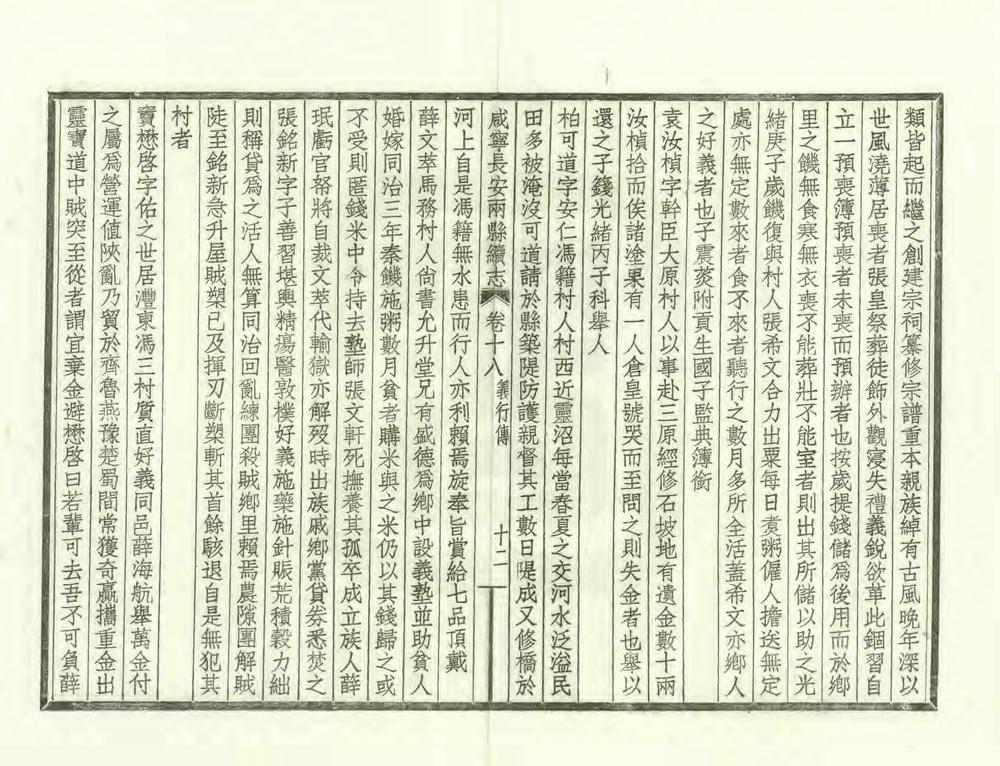 類皆起而繼之創建宗祠纂修宗譜重本親族綽有古風晚年深以
世風澆薄居喪者張皇祭葬徒飾外觀寖失禮義銳欲革此錮習自
立一預喪簿預喪者未喪而預辦者也按歲提錢儲爲後用而於鄉
里之饑無食寒無衣喪不能葬壯不能室者則出其所儲以助之光
緒庚子歲饑復與村人張希文合力出粟每日煮粥僱人擔送無定
處亦無定數來者食不來者聽行之數月多所全活蓋希文亦鄉人
之好義者也子震葵附貢生國子監典簿銜
袁汝楨字幹臣大原村人以事赴三原經修石坡地有遺金數十兩
汝楨拾而俟諸塗果有一人倉皇號哭而至問之則失金者也舉以
還之子籛光緒丙子科舉人
柏可道字安仁馮籍村人村西近靈沼每當春夏之交河水泛溢民
田多被淹沒可道請於縣築隄防護親督其工數日隄成又修橋於
咸寧長安兩縣續志 卷十八 義行傳 十二
河上自是馮籍無水患而行人亦利賴焉旋奉旨賞給七品頂戴
薛文萃馬務村人尙書允升堂兄有盛德爲鄉中設義塾並助貧人
婚嫁同治三年秦饑施粥數月貧者購米與之米仍以其錢歸之或
不受則匿錢米中令持去塾師張文軒死撫養其孤卒成立族人薛
珉虧官帑將自裁文萃代輸獄亦解歿時出族戚鄉黨貸券悉焚之
張銘新字子善習堪輿精瘍醫敦樸好義施藥施針賑荒積穀力絀
則稱貸爲之活人無算同治回亂練團殺賊鄉里賴焉農隙團解賊
陡至銘新急升屋賊槊已及揮刃斷槊斬其首餘駭退自是無犯其
村者
竇懋啓字佑之世居灃東馮三村質直好義同邑薛海航舉萬金付
之屬爲營運値陝亂乃貿於齊魯燕豫楚蜀間常獲奇贏攜重金出
靈寶道中賊突至從者謂宜棄金避懋啓曰若輩可去吾不可負薛